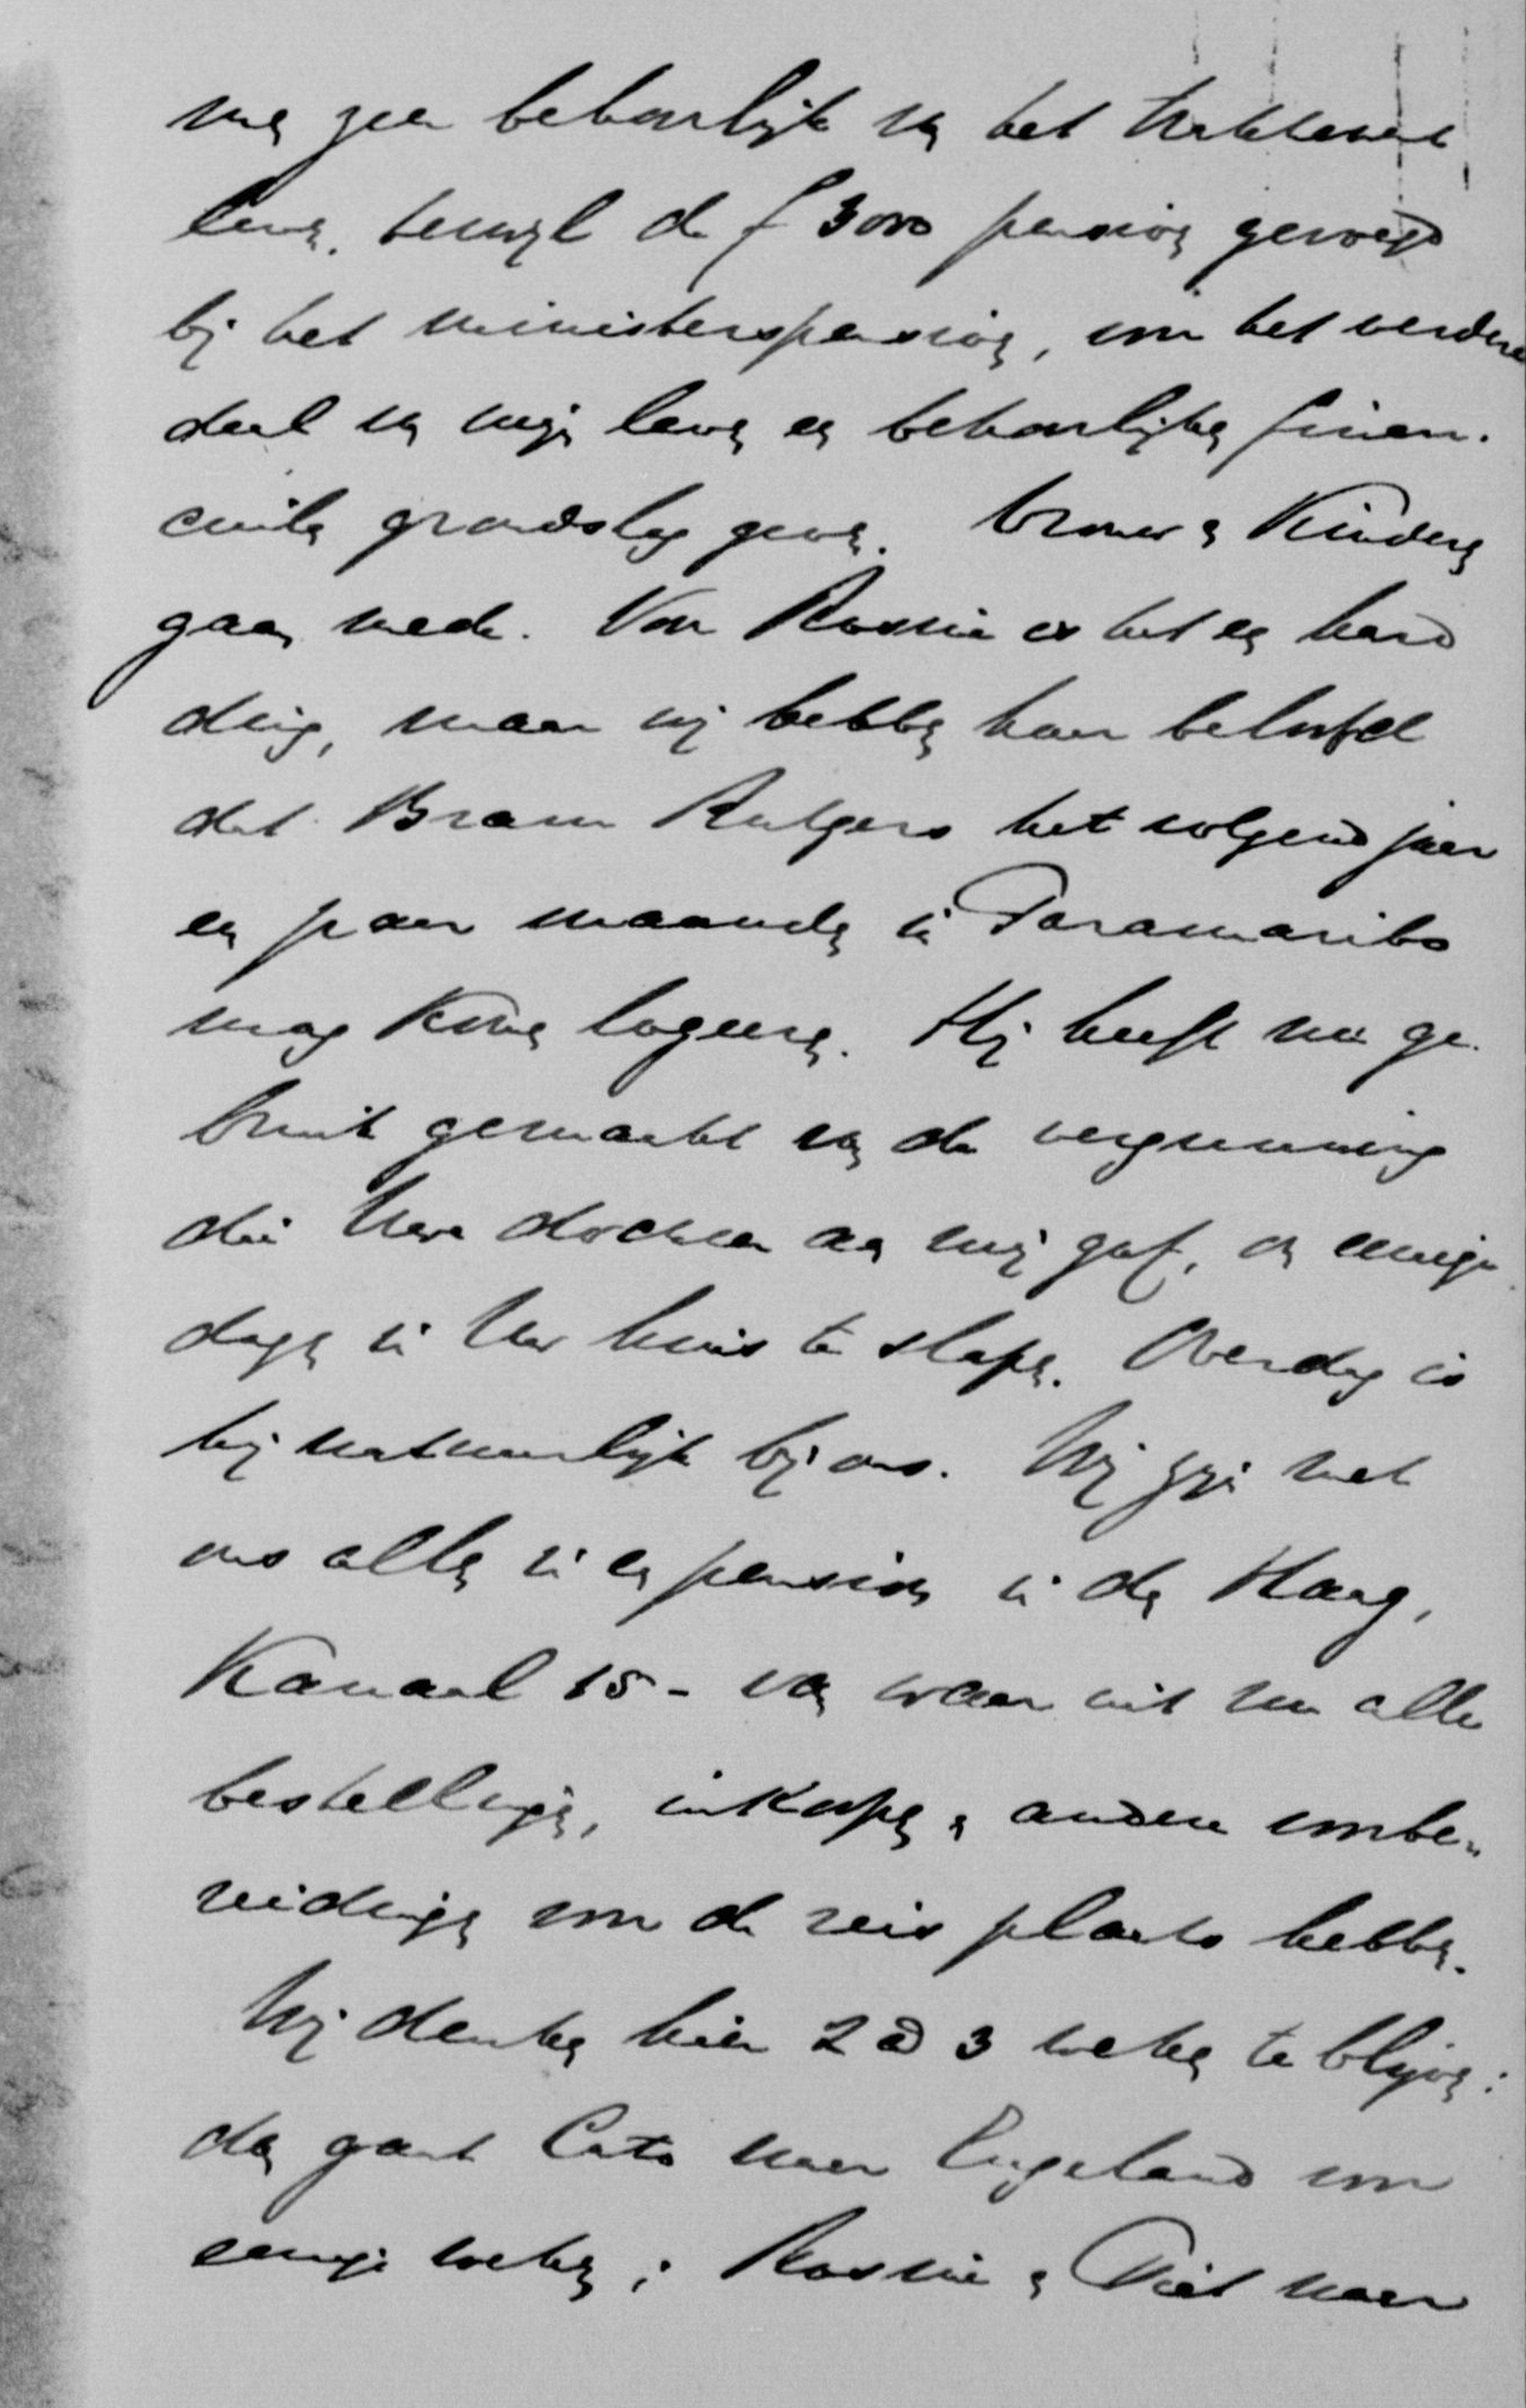 zeer behoorlijk van het traktement
leven, terwijl de f 3000 pensioen gevoegd
bij het ministerspensioen, voor het verdere
deel van mijn leven een behoorlijken finan-
cieelen grondslag geven. Vrouw en Kinderen
gaan mede. Voor Rosmie is het een hard
ding, maar wij hebben haar beloofd
dat Bram Rutgers het volgend jaar
een paar maanden in Paramaribo
mag komen logeeren. Hij heeft nu ge-
bruik gemaakt van de vergunning
die Uwe dochter aan mij gaf, om eenige
dagen in Uw huis te slapen. Overdag is
hij natuurlijk bij ons. Wij zijn met
ons allen in een pension in den Haag,
Kanaal 15 - van waar uit nu alle
bestellingen, inkoopen en andere voorbe-
reidingen voor de reis plaats hebben.
Wij denken hier 2 à 3 weken te blijven:
dan gaat Cato naar Engeland voor
eenige weken; Rosmie en Piet naar